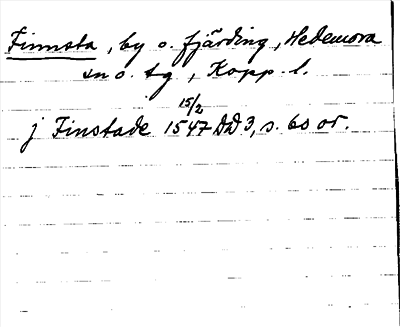 Finnsta, by o. fjärding, Hedemora
sn o. tg, Kopp. l.
15/2
j Finstade 1547 DD 3, s. 60 or.